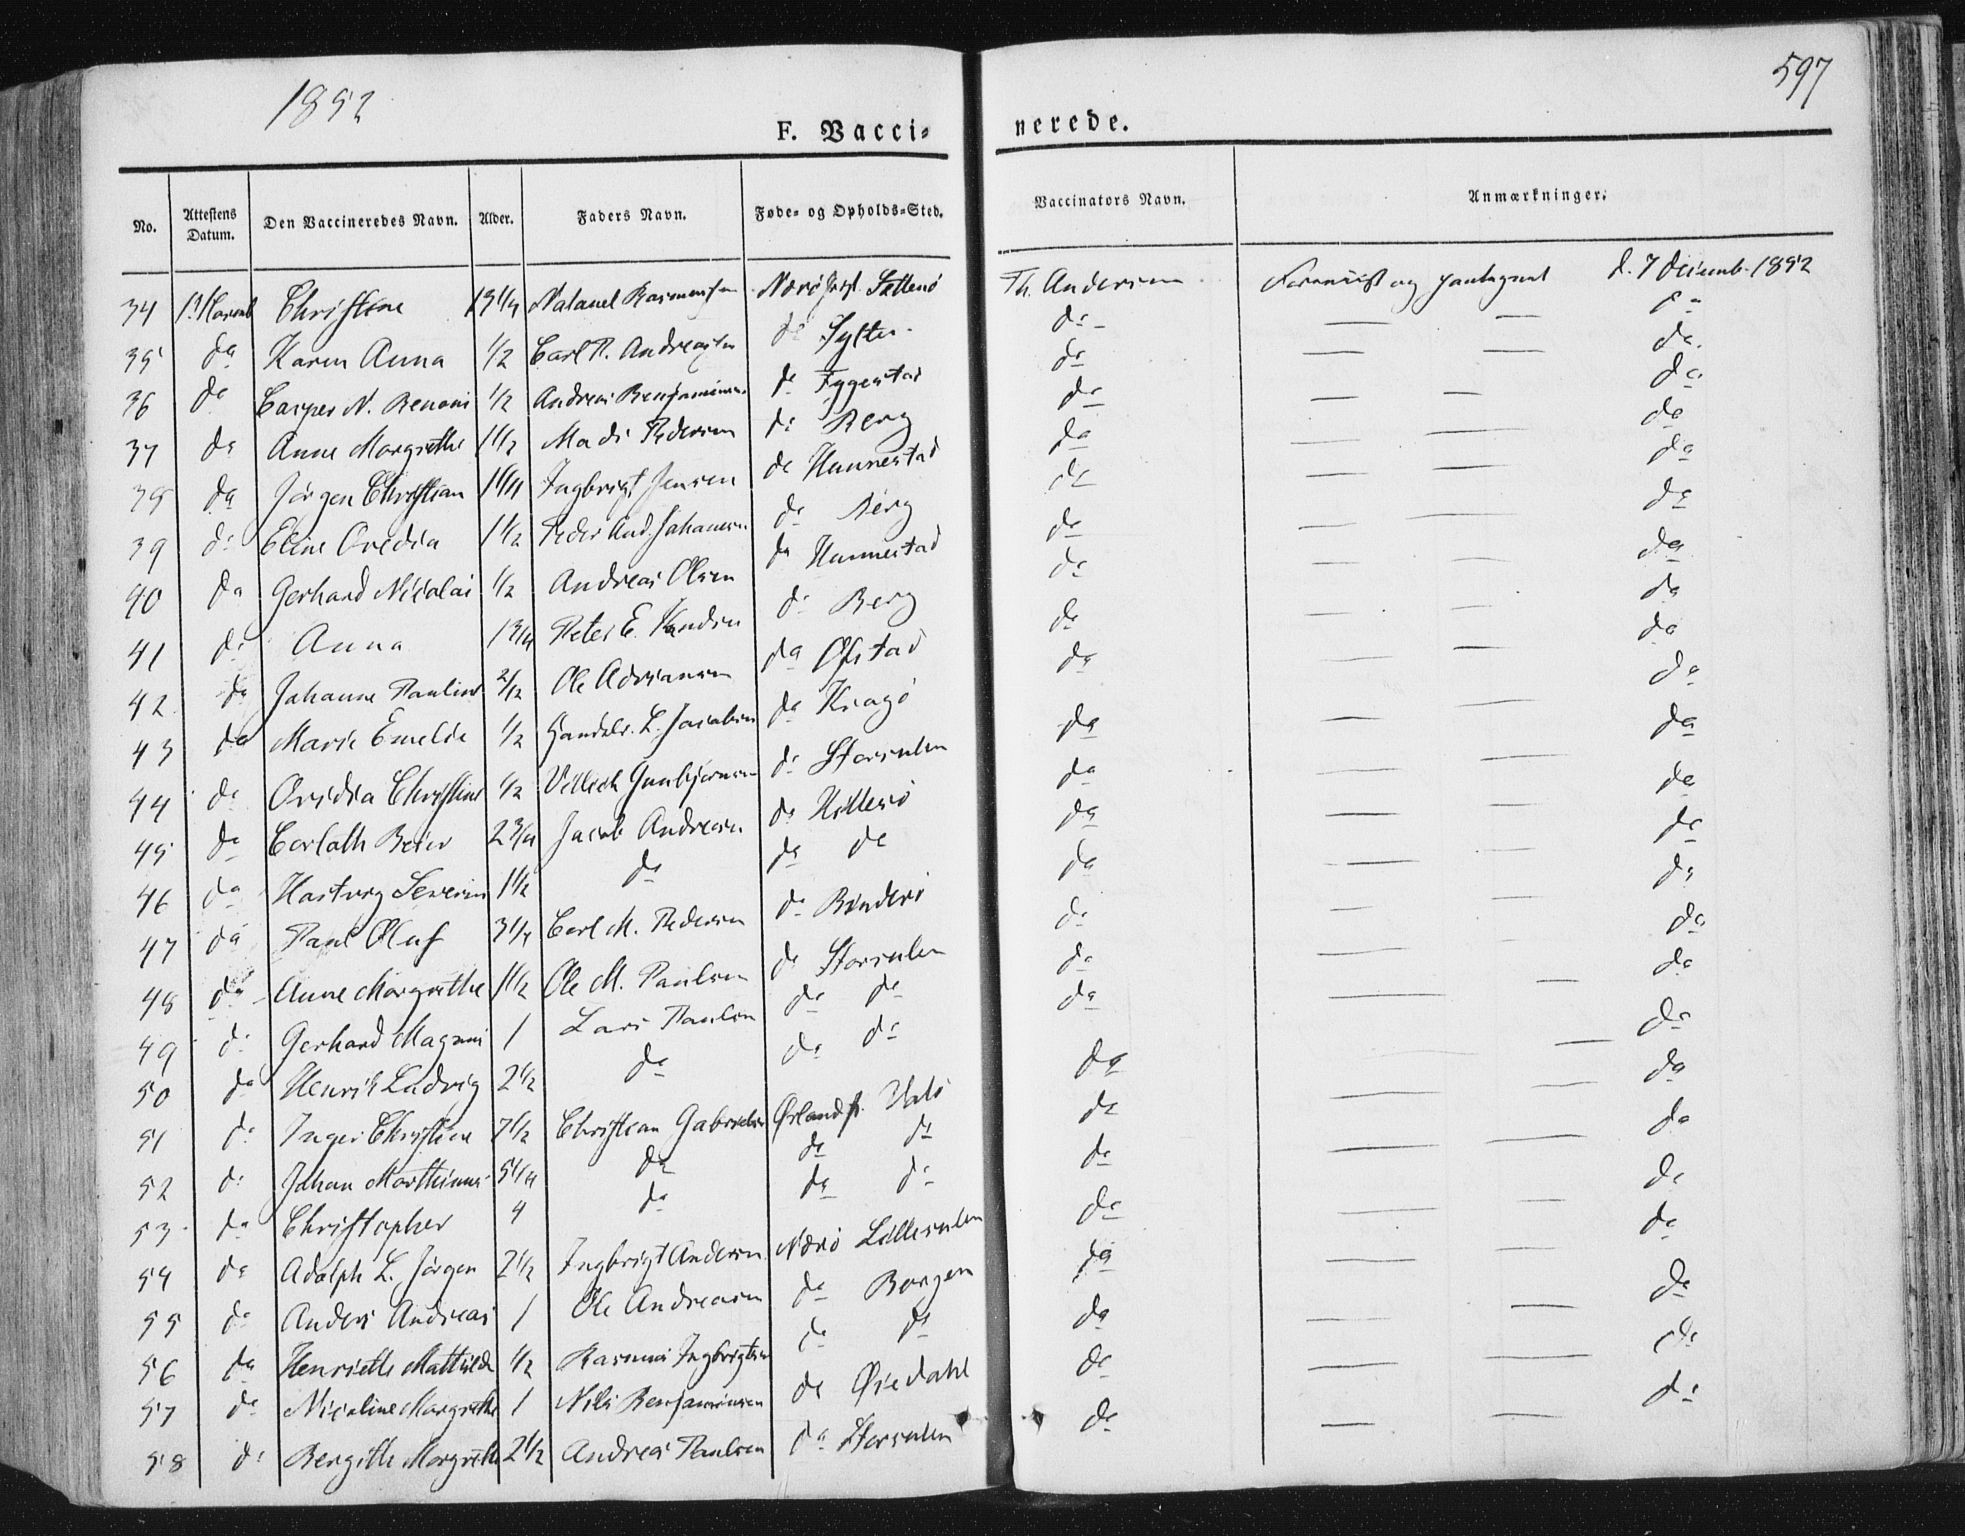 1852
597
F. Vacci=
nerede.
No. Attestens Datum. Den Vaccineredes Navn. Alder. Faders Navn. Føde= og Opholds=Sted. Vaccinators Navn. Anmærkninger.
34 Christine Natanel Rasmussen Nærö Th. Andersen og d. 7 Decemb. 1852
35 do Karen Anna 1/2 Carl P. Andreasen do do — — do
36 do Casper N. Benoni 1/2 Andreas Benjaminsen do Eggestad do — — do
37 do Anne Margrethe 1 1/2 Mads Pedersen do Berg do — — do
38 do Jörgen Christian 1 1/4 Ingbrigt Jensen do Hunnestad do — — do
39 do Eline Ovedia 1 1/2 Peder And. Johansen do Berg do — — do
40 do Gerhard Nicolai 1/2 Andreas Olsen do Hunnestad do — — do
41 do Anna 1 3/4 Peter E. do Berg do — — do
42 do Johanne Pauline 2/12 Ole Adriansen do Ofstad do — — do
43 do Marie Emelie 1/2 Handelsm. L. Jacobsen do Kragö do — — do
44 do Ovidia Christine 1/2 Villich Gunbjørnsen do Storsulen do — — do
45 do 2 3/4 Jacob Andreasen do Hillesö do — — do
46 do Hartvig Severin 1 1/2 do do do do — — do
47 do Paul Oluf 3 1/4 Carl M. Pedersen do Binderö do — — do
48 do Anne Margrethe 1 1/2 Ole M. Paulsen do Storsulen do — — do
49 do Gerhard Magnus 1 Lars Paulsen do do do — — do
50 do Henrik Ludvig 2 1/2 do do do do — — do
51 do Inger Christine 7 1/2 Christian Gabrielsen Ørland do — — do
52 do Johan Marthinus 5 1/4 do do do do — — do
53 do Christopher 4 do do do do — — do
54 do Adolph L. Jörgen 2 1/2 Ingbrigt Andersen Nærö Lillesulen do — — do
55 do Anders Andreas 1 Ole Andreasen do Borgen do — — do
56 do Henriette Mathilde 1/2 Rasmus Ingbrigtsen do do do — — do
57 do Nicoline Margrethe 1 Nils Benjaminsen do Øiedahl do — — do
58 do Bergithe Margrethe 2 1/2 Andreas Paulsen do Storsulen do — — do